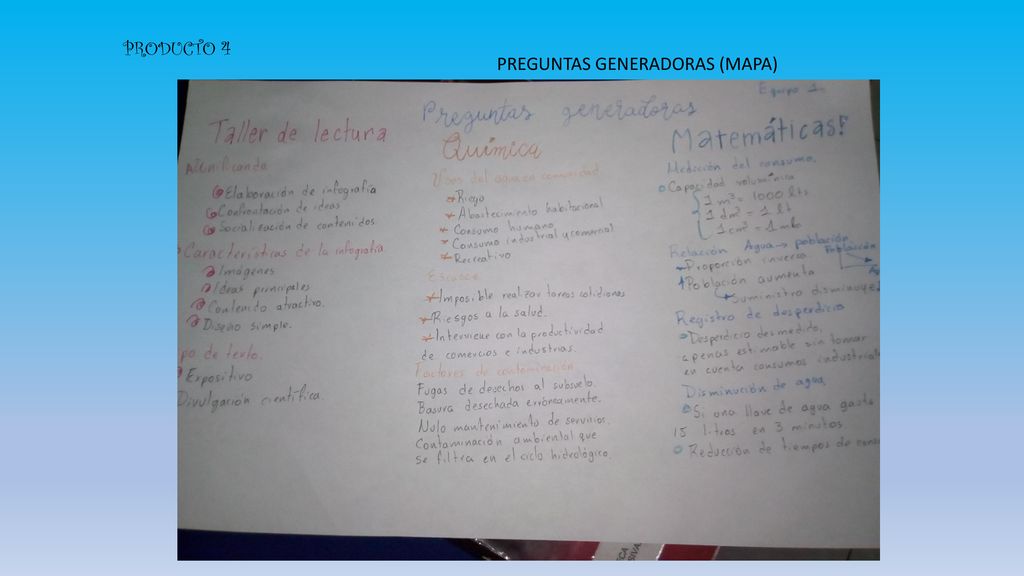 PRODUCTO 4
PREGUNTAS GENERADORAS (MAPA)
Equipo 1.
Preguntas generadoras
Taller de lectura
Planificando
Elaboración de infografía
Confrontación de ideas
Socialización de contenidos.
Características de la infografía.
Imágenes
Ideas principales
Contenido atractivo.
Diseño simple.
po de texto.
Expositivo
Divulgación científica.
Química
Usos del agua en comunidad
Riego
Abastecimiento habitacional
Consumo humano
Consumo industrial y comercial
Recreativo
Escasez
Imposible realizar tareas cotidianas
Riesgos a la salud.
Interviene con la productividad
de comercios e industrias.
Factores de contaminación
Fugas de desechos al subsuelo.
Basura desechada erróneamente.
Nulo mantenimiento de servicios.
Contaminación ambiental que
se filtra en el ciclo hidrológico.
Matemáticas!
Medición del consumo.
Capacidad volumétrica
1 m³ = 1000 lts
1 dm³ = 1 lt
1 cm³ = 1 ml
Relación Agua → población
Población
Proporción inversa
Población aumenta
Suministro disminuye
Registro de desperdicio
Desperdicio desmedido,
apenas estimable sin tomar
en cuenta consumos industrial
Disminución de agua,
Si una llave de agua gasta
15 litros en 3 minutos
Reducción de tiempos de cons